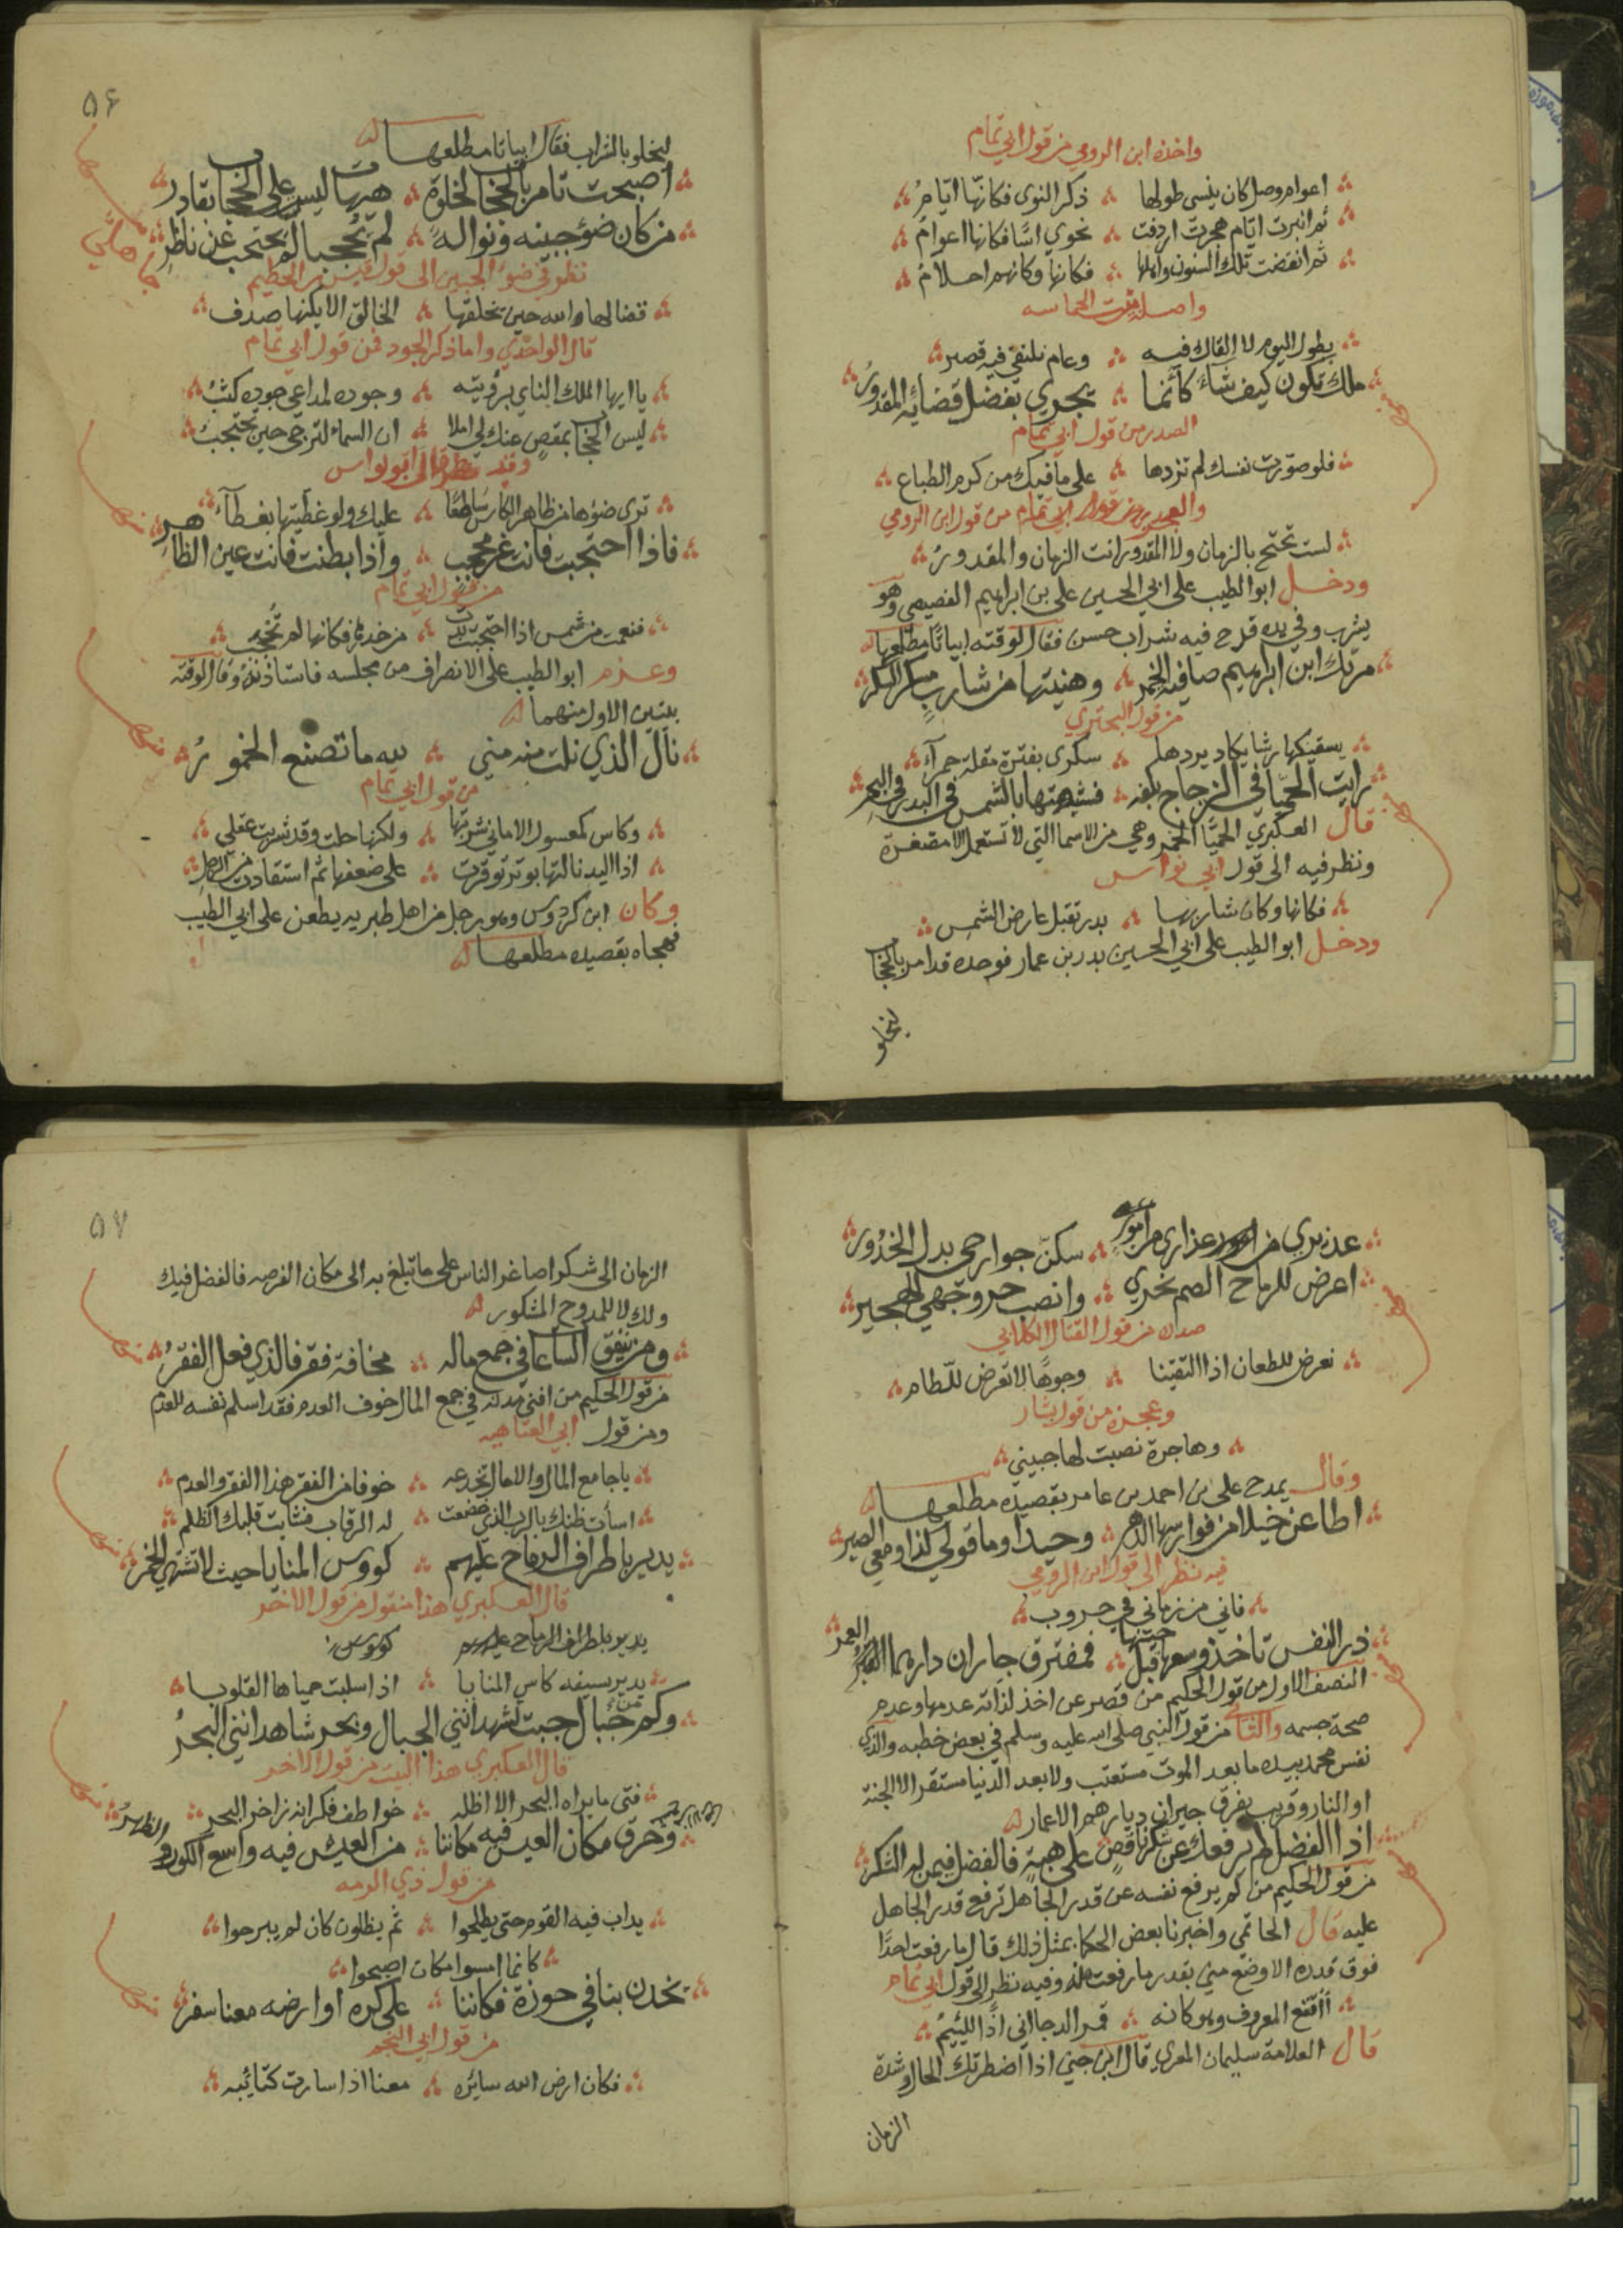 واخذه ابن الرومي من قول ابي تمام
اعوام وصل كان ينسى طولها ذكر النوى فكانها ايام
ثم انبرت ايام هجر اردفت نحوي اسا فكانها اعوام
ثم انقضت تلك السنون واهلها فكانها وكانهم احلام
واصله بيت الحماسه
يطول اليوم لا القاك فيه وعام نلتقي فيه قصير
ملك تكون كيف شاء كأنما يجري بفضل قضائه المقدور
الصدر من قول ابي تمام
فلو صورت نفسك لم تزدها على ما فيك من كرم الطباع
والعجز من قول ابن الرومي
لست تحتج بالزمان ولا المقدور انت الزمان والمقدور
ودخل ابو الطيب على ابي الحسين علي بن ابراهيم الفصيصي وهو
يشرب وفي يده قدح فيه شراب حسن فقال لوقته ابياتا مطلعها
مرتك ابن ابراهيم صافيه الخمر وهنيتها من شارب مسكر السكر
من قول البحتري
يسقيكها رشا يكاد يردها سكرى بفترة مقلة حمرآء
رايت الحميا في الزجاج بكفه فشبهتها بالشمس في البدر في البحر
قال العكبري الحميا الخمر وهي من الاسما التي لا تستعمل الا مصغرة
ونظر فيه الى قول ابي نواس
فكانها وكان شاربها بدر تقبل عارض الشمس
ودخل ابو الطيب على ابي الحسين بدر بن عمار فوجده قد امر بالحجاب
ليخلو
۵۶
ليخلو بالشراب فقال ابياتا مطلعها
أصبحت تامر بالحجاب لخلوة هيهات ليس على الحجاب بقادر
من كان ضوء جبينه ونواله لم يحجبا لم يحتجب عن ناظر
نظر في ضوء الجبين الى قول قيس بن الحطيم
قضا لها الله حين يخلقها الخالق الا يكنها صدف
قال الواحدي واما ذكر الجود فمن قول ابي تمام
يا ايها الملك النائي برؤيته وجوده لمراعي جوده كثب
ليس الحجاب بمقص عنك لي املا ان السماء لترجى حين تحتجب
وقد نظر الى ابو نواس
ترى ضوءها من ظاهر الكاس ساطعا عليك ولو غطيتها بغطآء
فاذا احتجبت فانت غير محجب واذا بطنت فانت عين الظاهر
من قول ابي تمام
فنعمت من شمس اذا احتجبت بدت من خدرها فكانها لم تحجب
وعزم ابو الطيب على الانصراف من مجلسه فاستاذنه وقال لوقته
بيتين الاول منهما
نال الذي نلت منه مني لله ما تصنع الخمور
من قول ابي تمام
وكاس كمعسول الاماني شربتها ولكنها حلت وقد شربت عقلي
اذا اليد نالتها بوتر توقرت على ضعفها ثم استقادت من الرجل
وكان ابن كردوس وهو رجل من اهل طبريه يطعن على ابي الطيب
فهجاه بقصيده مطلعها
عذيري من عذارى من امور سكن جوارحي بدل الخدور
اعرض للرماح الصم نحري وانصب حر وجهي للهجير
صدره من قول القتال الكلابي
نعرض للطعان اذا التقينا وجوها لا تعرض للطام
وعجزه من قول بشار
وهاجرة نصبت لها جبيني
وقال يمدح علي بن احمد بن عامر بقصيده مطلعها
اطاعن خيلا من فوارسها الدهر وحيدا وما قولي كذا ومعي الصبر
فيه نظر الى قول ابن الرومي
فاني من زماني في حروب
ذر النفس تاخذ وسعها قبل بينها فمفترق جاران دارهما العمر
النصف الاول من قول الحكيم من قصر عن اخذ لذاته عدمها وعدم
صحة جسمه والثاني من قول النبي صلى الله عليه وسلم في بعض خطبه والذي
نفس محمد بيده ما بعد الموت مستعتب ولا بعد الدنيا مستقر الا الجنة
او النار وقريب يفرق جيران ديارهم الاعمار
اذا الفضل لم يرفعك عن شكر ناقص على هبة فالفضل فيمن له الشكر
من قول الحكيم من لم يرفع نفسه عن قدر الجاهل ترفع قدر الجاهل
عليه قال الحاتمي واخبرنا بعض الحكما بمثل ذلك قال ما رفعت احدا
فوق قدره الا وضع مني بقدر ما رفعت منه وفيه نظر الى قول ابي تمام
أأقنع المعروف وهو كانه قمر الدجا اني اذا للئيم
قال العلامة سليمان المعري قال ابن جني اذا اضطرتك الحال وشدة
الزمان
۵۷
الزمان الى شكر اصاغر الناس على ما تبلغ به الى مكان الفرصه فالفضل فيك
ولك لا للمدوح المشكور
ومن ينفق الساعات في جمع ماله مخافة فقر فالذي فعل الفقر
من قول الحكيم من افنى مدته في جمع المال خوف العدم فقد اسلم نفسه للعدم
ومن قول ابي العتاهيه
يا جامع المال والامال تخدعه خوفا من الفقر هذا الفقر والعدم
اسأت ظنك بالرب الذي خضعت له الرقاب فشابت قلبك الظلم
يدير باطراف الرماح عليهم كووس المنايا حيث لا تشتهي الخمر
قال العكبري هذا منقول من قول الاخر
يدير باطراف الرماح عليهم كووس
يدير بسيفه كاس المنايا اذا سلبت حمياها القلوب
وكم من جبال جبت تشهد انني الجبال وبحر شاهد انني البحر
قال العكبري هذا البيت من قول الاخر
فتى ما يراه البحر الا اظله خواطف فكر انه زاخر البحر
وخرق مكان العيس فيه مكاننا من العيس فيه واسع الكور والظهر
من قول ذي الرمه
يداب فيه القوم حتى يطلحوا ثم يظلون كان لم يبرحوا
كانما امسوا مكان اصبحوا
يخدن بنا في جوزه فكاننا على كره او ارضه معنا سفر
من قول ابي النجم
فكان ارض الله سايره معنا اذا سارت كتائبه